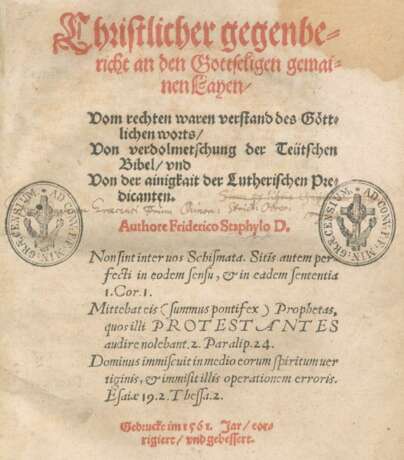 Christlicher gegenbe-
richt an den Gottseligen gemai-
nen Layen/
Vom rechten waren verstand des Gött-
lichen worts/
Von verdolmetschung der Teütschen
Bibel/ vnd
Von der ainigkait der Lutherischen Pre-
dicanten.
Authore Friderico Staphylo D.
AD CONV. F. MIN. GRÆCENSIUM.
AD CONV. F. MIN. GRÆCENSIUM.
Non sint inter uos Schismata. Sitis autem per
fecti in eodem sensu, & in eadem sententia
1. Cor. 1.
Mittebat eis (summus pontifex) Prophetas,
quos illi PROTESTANTES
audire nolebant. 2. Paralip. 24.
Dominus immiscuit in medio eorum spiritum uer
tiginis, & immisit illis operationem erroris.
Esaiæ 19. 2. Thessa. 2.
Gedruckt im 1561. Jar/ cor-
rigiert/ vnd gebessert.